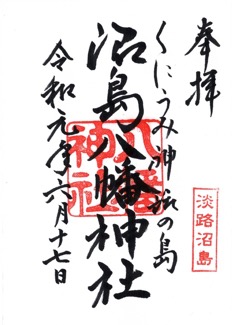 奉拝
くにうみ神話の島
沼島八幡神社
八幡神社
令和元年六月十七日
淡路沼島